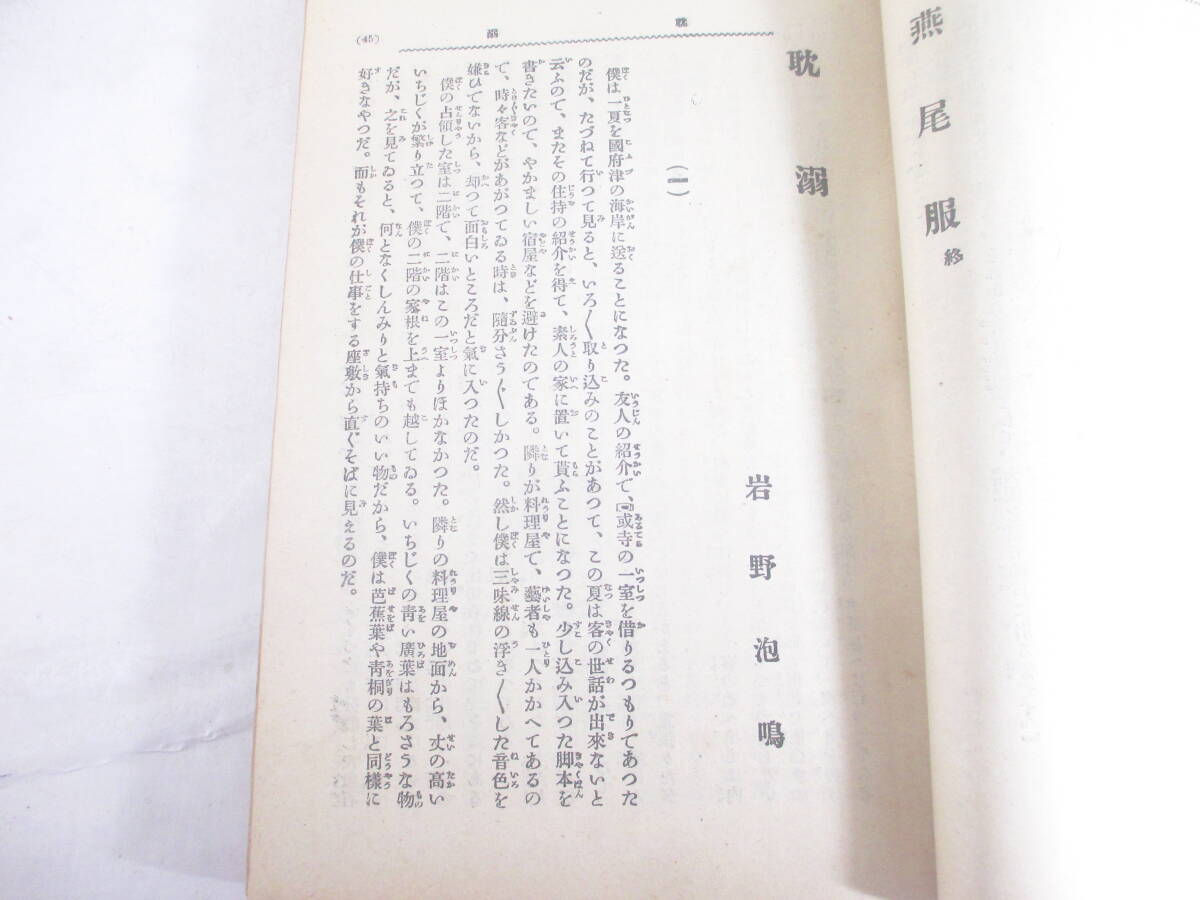 燕尾服 終
耽溺
(45)
耽溺
岩野泡鳴
(一)
僕は一夏を國府津の海岸に送ることになつた。友人の紹介で、或寺の一室を借りるつもりであつた
のだが、たづねて行つて見ると、いろ〱取り込みのことがあつて、この夏は客の世話が出來ないと
云ふので、またその住持の紹介を得て、素人の家に置いて貰ふことになつた。少し込み入つた脚本を
書きたいので、やかましい宿屋などを避けたのである。隣りが料理屋で、藝者も一人かかへてあるの
で、時々客などがあがつてゐる時は、隨分さう〲しかつた。然し僕は三味線の浮き〱した音色を
嫌ひでないから、却つて面白いところだと氣に入つたのだ。
僕の占領した室は二階で、二階はこの一室よりほかなかつた。隣りの料理屋の地面から、丈の高い
いちじくが繁り立つて、僕の二階の家根を上までも越してゐる。いちじくの青い廣葉はもろさうな物
だが、之を見てゐると、何となくしんみりと氣持ちのいい物だから、僕は芭蕉葉や青桐の葉と同樣に
好きなやつだ。而もそれが僕の仕事をする座敷から直ぐそばに見えるのだ。